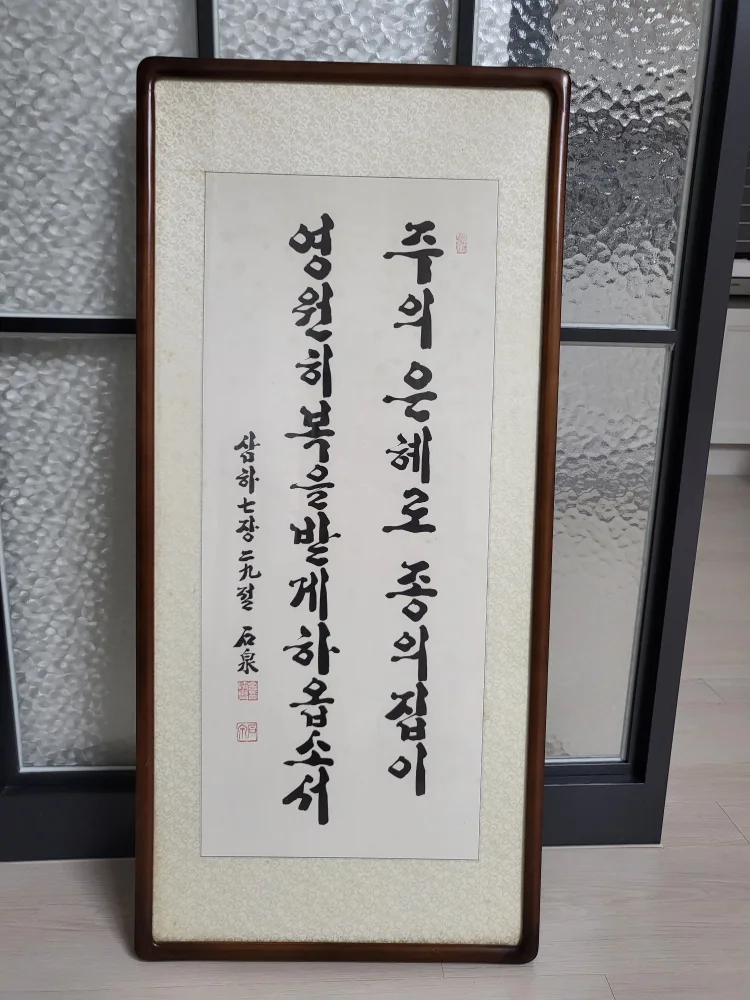 주의 은혜로 종의 집이
영원히 복을 받게 하옵소서
삼하 七장 二九절 石泉